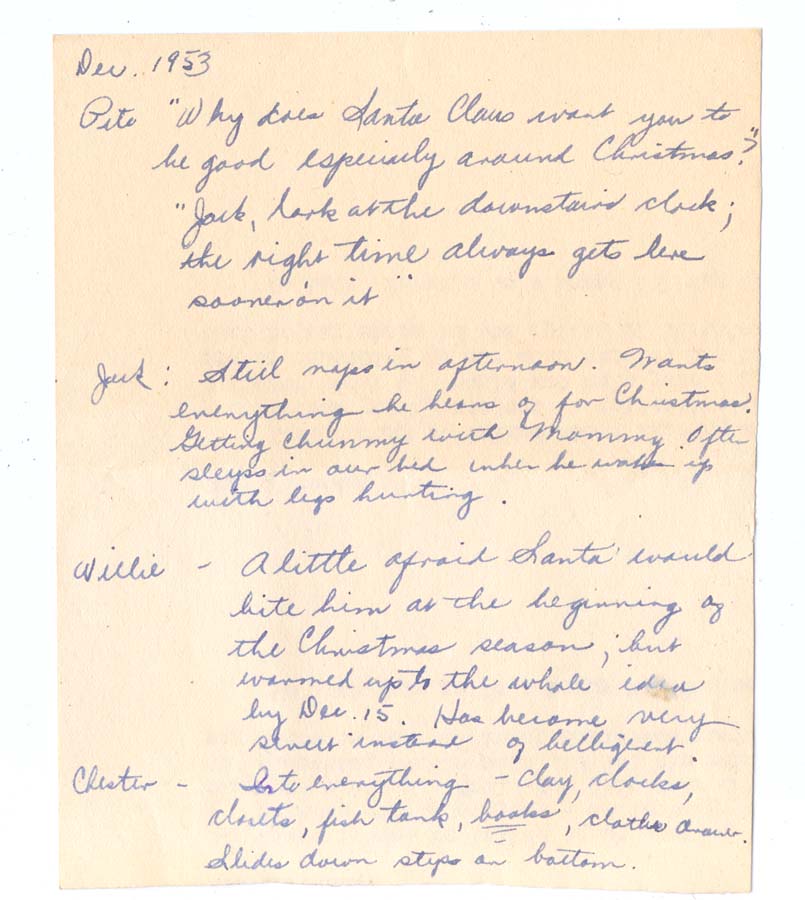 Dec. 1953
Pete "Why does Santa Claus want you to
be good especially around Christmas?"
"Jack, look at the downstairs clock;
the right time always gets here
sooner on it"
Jack: Still naps in afternoon. Wants
everything he hears of for Christmas.
Getting chummy with Mommy. Often
sleeps in our bed when he wakes up
with legs hurting.
Willie - A little afraid Santa would
bite him at the beginning of
the Christmas season; but
warmed up to the whole idea
by Dec. 15. Has become very
sweet instead of belligerent.
Chester - Into everything - clay, clocks,
closets, fish tank, books, clothes drawer.
Slides down steps on bottom.